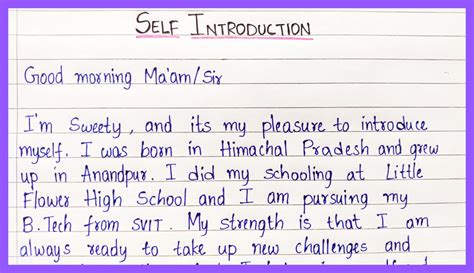 SELF INTRODUCTION
Good morning Ma'am/Sir
I'm Sweety, and its my pleasure to introduce
myself. I was born in Himachal Pradesh and grew
up in Anandpur. I did my schooling at Little
Flower High School and I am pursuing my
B.Tech from SVIT. My strength is that I am
always ready to take up new challenges and